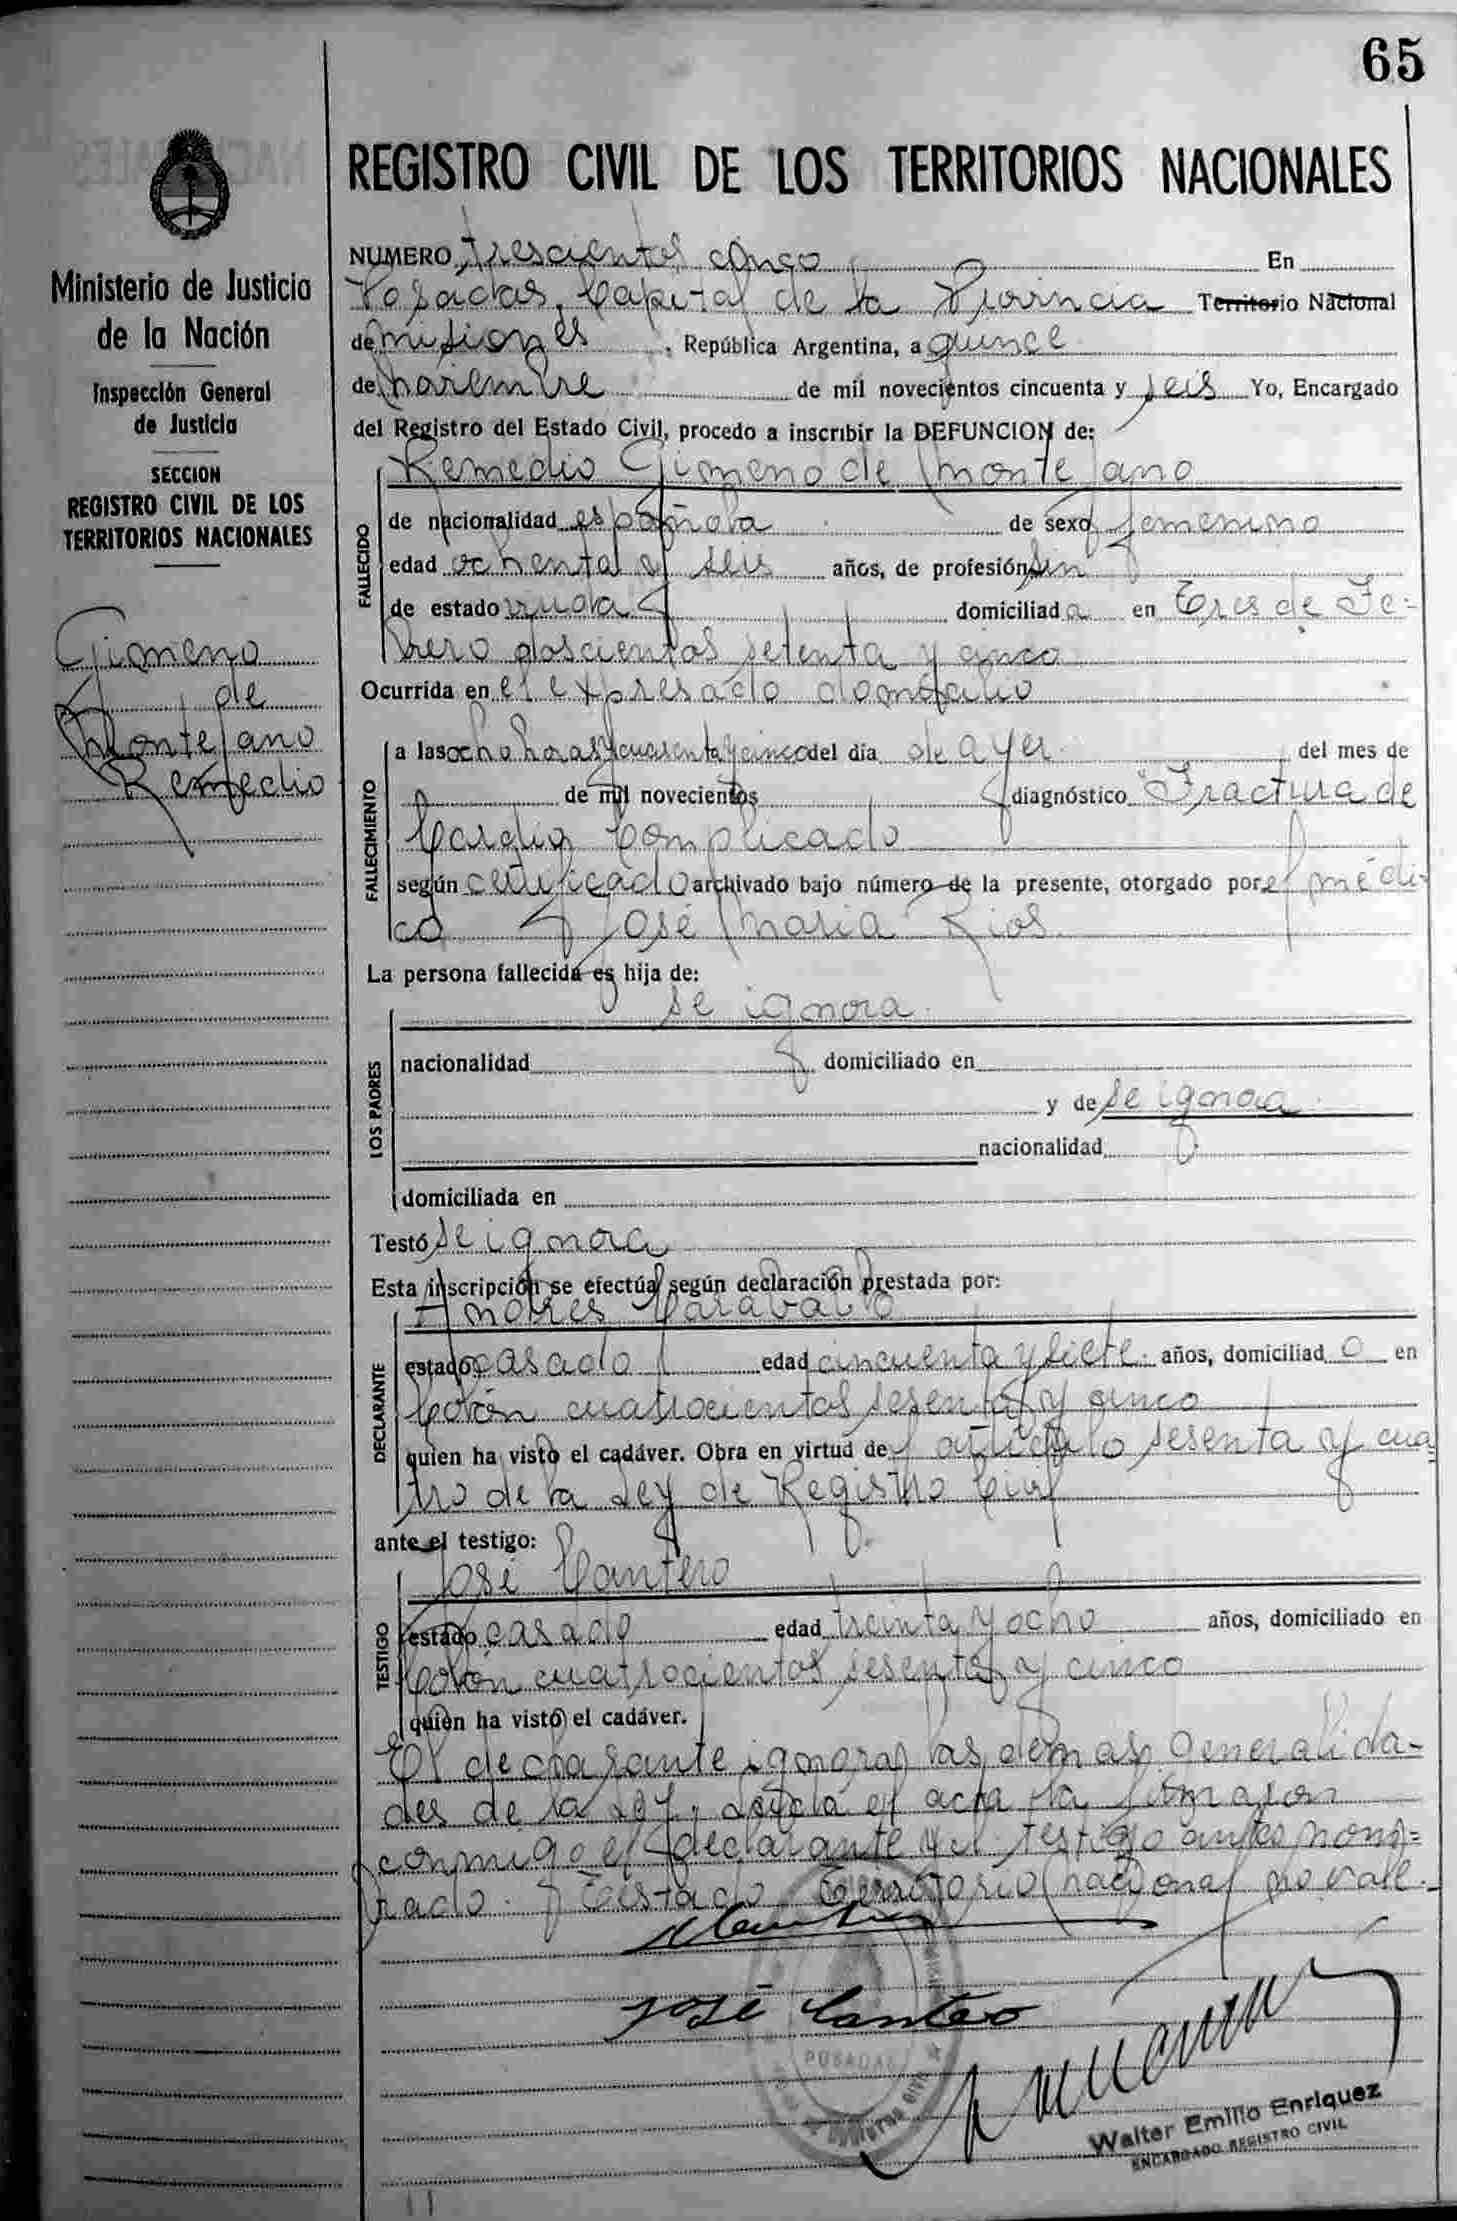 65
REGISTRO CIVIL DE LOS TERRITORIOS NACIONALES
Ministerio de Justicia
de la Nación
Inspección General
de Justicia
SECCION
REGISTRO CIVIL DE LOS
TERRITORIOS NACIONALES
Gimeno
de
Montejano
Remedio
NUMERO trescientos cinco En
Posadas, Capital de la Provincia Territorio Nacional
de misiones, República Argentina, a quince
de noviembre de mil novecientos cincuenta y seis Yo, Encargado
del Registro del Estado Civil, procedo a inscribir la DEFUNCION de:
Remedio Gimeno de Montejano
FALLECIDO
de nacionalidad española de sexo femenino
edad ochenta y seis años, de profesión sin
de estado viuda domiciliada en Tres de Fe-
brero doscientos setenta y cinco
Ocurrida en el expresado domicilio
FALLECIMIENTO
a las ocho horas y cuarenta y cinco del día de ayer del mes de
de mil novecientos diagnóstico Fractura de
complicado
según certificado archivado bajo número de la presente, otorgado por el médi-
co José Maria Rios
La persona fallecida es hija de:
se ignora
LOS PADRES
nacionalidad domiciliado en
y de se ignora
nacionalidad
domiciliada en
Testó se ignora
Esta inscripción se efectúa según declaración prestada por:
Andres
DECLARANTE
estado casado edad cincuenta y siete años, domiciliado en
Colón cuatrocientos sesenta y cinco
quien ha visto el cadáver. Obra en virtud del articulo sesenta y cua-
tro de la Ley de Registro Civil
ante el testigo:
José Cantero
TESTIGO
estado casado edad treinta y ocho años, domiciliado en
Colón cuatrocientos sesenta y cinco
quien ha visto el cadáver.
El declarante ignora las demas generalida-
des de la Ley. Leida el acta la firmaron
conmigo el declarante y el testigo antes nom-
brado. Testado Territorio nacional no vale.
José Cantero
POSADAS
Walter Emilio Enriquez
ENCARGADO REGISTRO CIVIL